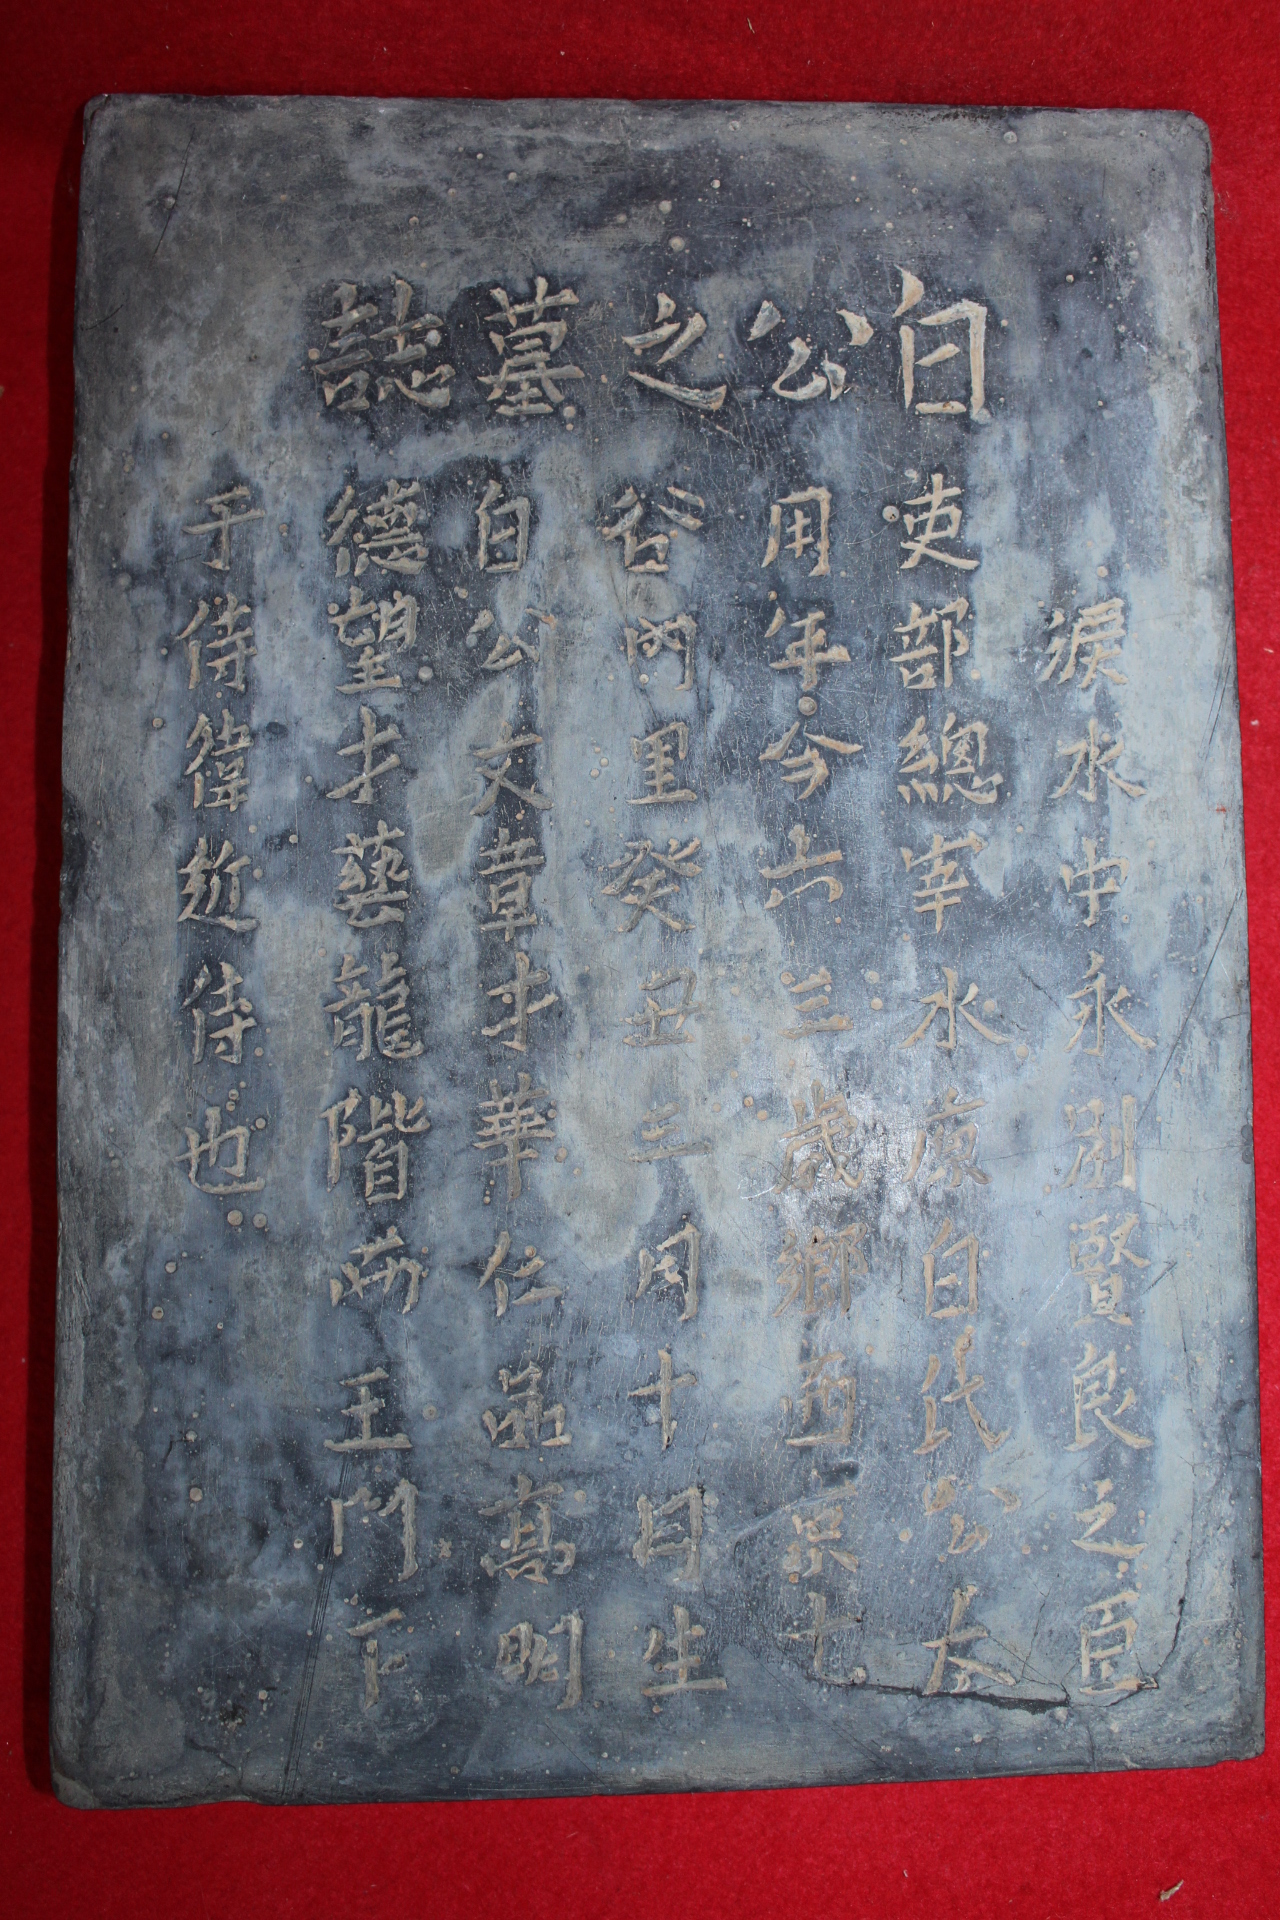 白公之墓誌
淚水中永瀏賢良之臣
吏部總宰水原白氏公太
用年今六三歲鄉西京七
谷內里癸丑三月十日生
白公文章才華仁品高明
德望才藝龍階前王門下
于侍偉近侍也